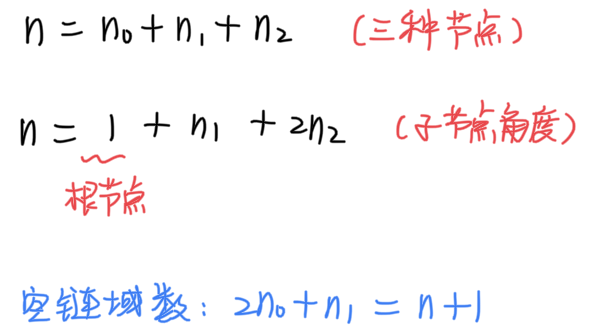 n = n₀ + n₁ + n₂ (三种节点)
n = 1 + n₁ + 2n₂ (子节点角度)
根节点
空链域数: 2n₀ + n₁ = n + 1